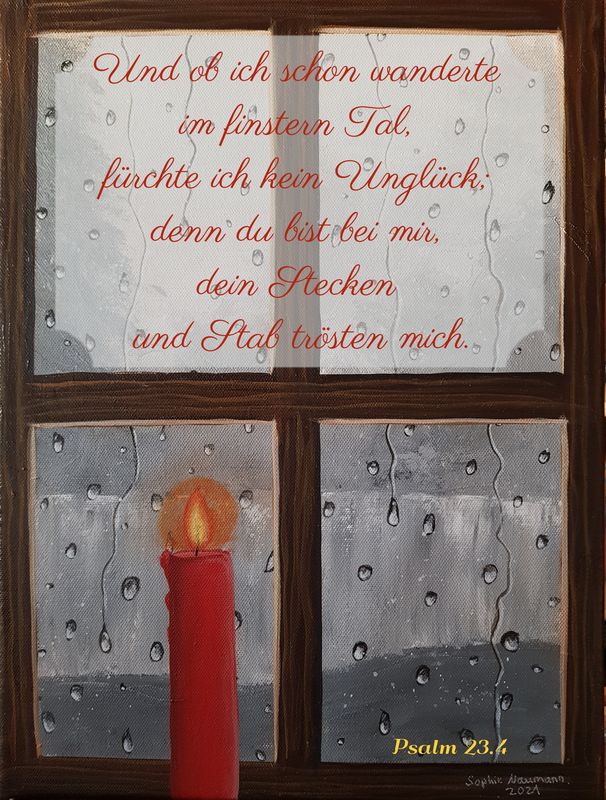 Und ob ich schon wanderte
im finstern Tal,
fürchte ich kein Unglück;
denn du bist bei mir,
dein Stecken
und Stab trösten mich.
Psalm 23.4
Sophie Naumann.
2021